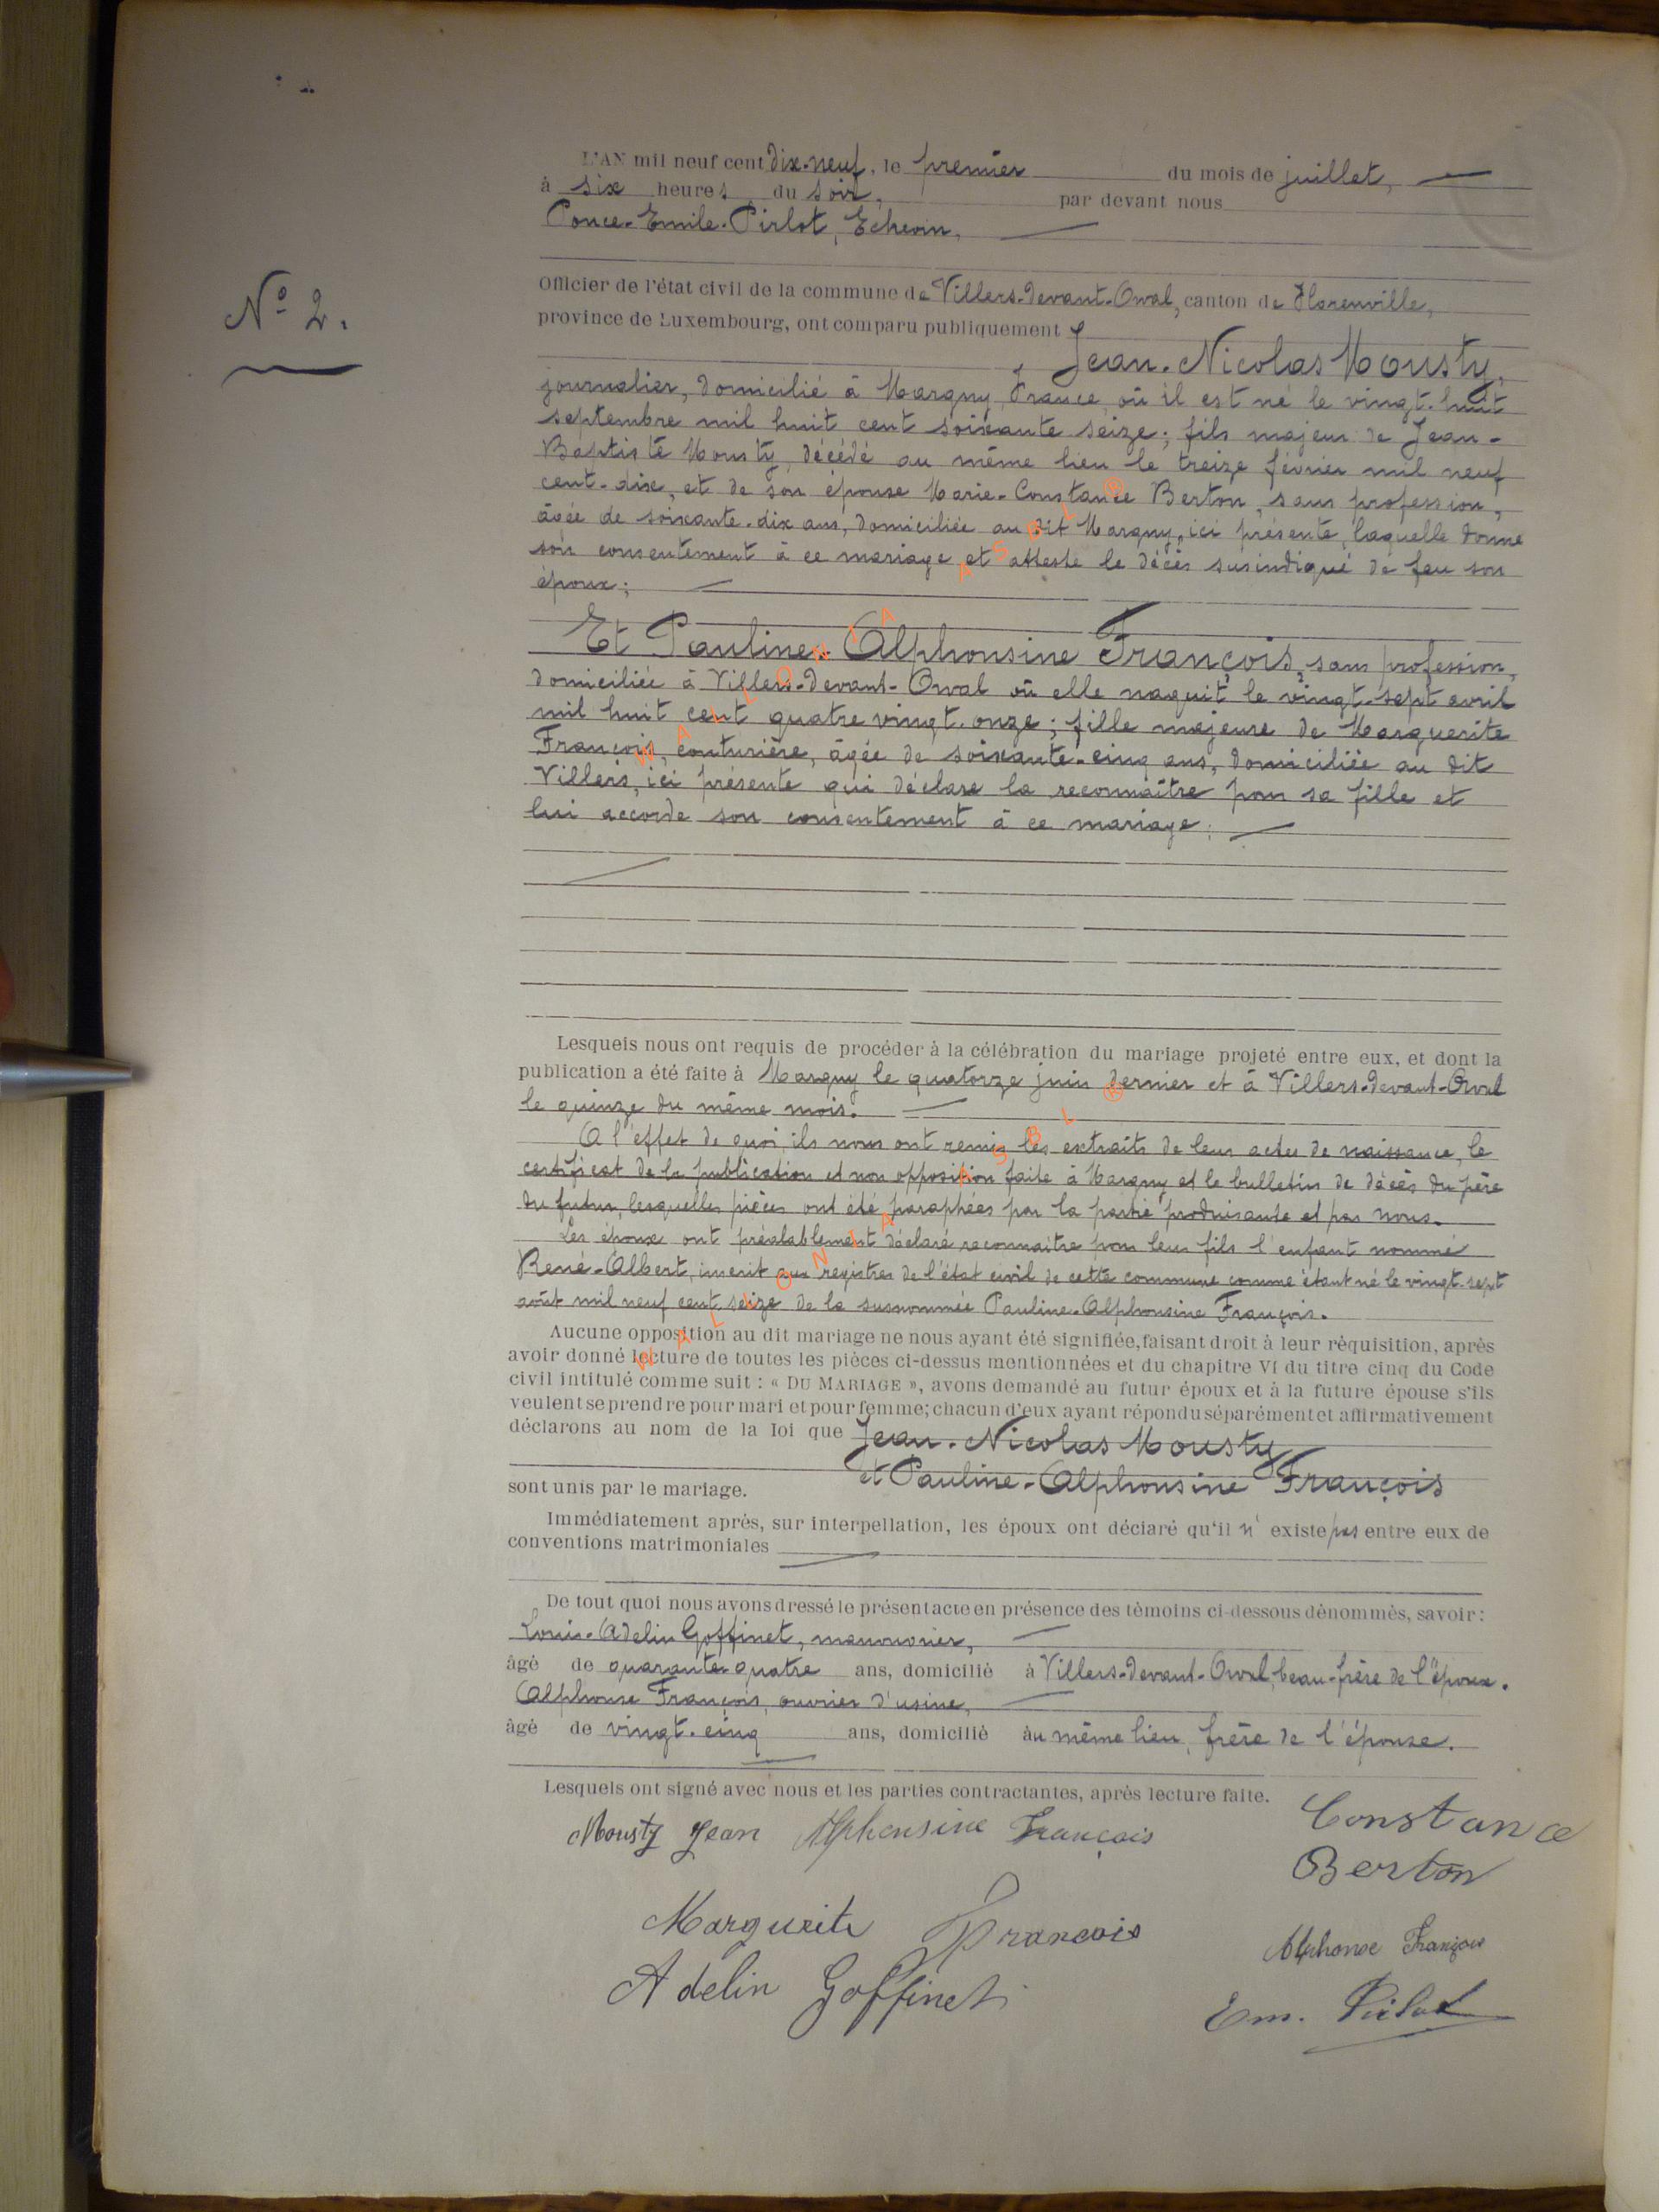 L'AN mil neuf cent dix-neuf, le premier du mois de juillet,
à six heures du soir, par devant nous
Ponce-Emile-Pirlot, Echevin,
Officier de l'état civil de la commune de Villers-devant-Orval, canton de Florenville,
province de Luxembourg, ont comparu publiquement
N° 2.
Jean-Nicolas Mousty,
journalier, domicilié à Margny, France, où il est né le vingt-huit
septembre mil huit cent soixante seize; fils majeur de Jean-
Baptiste Mousty, décédé au même lieu le treize février mil neuf
cent-dix, et de son épouse Marie-Constance Berton, sans profession,
âgée de soixante-dix ans, domiciliée au dit Margny, ici présente, laquelle donne
son consentement à ce mariage et atteste le décès susindiqué de feu son
époux;
Et Pauline-Alphonsine François, sans profession,
domiciliée à Villers-devant-Orval où elle naquit le vingt-sept avril
mil huit cent quatre vingt-onze; fille majeure de Marguerite
François, couturière, âgée de soixante-cinq ans, domiciliée au dit
Villers, ici présente qui déclare la reconnaître pour sa fille et
lui accorde son consentement à ce mariage;
WALLONIA ASBL ®
Lesquels nous ont requis de procéder à la célébration du mariage projeté entre eux, et dont la
publication a été faite à Margny le quatorze juin dernier et à Villers-devant-Orval
le quinze du même mois.
A l'effet de quoi, ils nous ont remis les extraits de leur actes de naissance, le
certificat de la publication et non opposition faite à Margny et le bulletin de décès du père
du futur, lesquelles pièces ont été paraphées par la partie produisante et par nous.
Les époux ont préalablement déclaré reconnaître pour leur fils l'enfant nommé
René-Albert, inscrit aux registres de l'état civil de cette commune comme étant né le vingt-sept
août mil neuf cent seize de la susnommée Pauline-Alphonsine François.
WALLONIA ASBL ®
Aucune opposition au dit mariage ne nous ayant été signifiée, faisant droit à leur réquisition, après
avoir donné lecture de toutes les pièces ci-dessus mentionnées et du chapitre VI du titre cinq du Code
civil intitulé comme suit : « DU MARIAGE », avons demandé au futur époux et à la future épouse s'ils
veulent se prendre pour mari et pour femme; chacun d'eux ayant répondu séparément et affirmativement
déclarons au nom de la loi que Jean-Nicolas Mousty
et Pauline-Alphonsine François
sont unis par le mariage.
Immédiatement après, sur interpellation, les époux ont déclaré qu'il n'existe pas entre eux de
conventions matrimoniales
De tout quoi nous avons dressé le présent acte en présence des témoins ci-dessous dénommés, savoir :
Louis-Adelin Goffinet, manouvrier,
âgé de quarante-quatre ans, domicilié à Villers-devant-Orval, beau-frère de l'époux.
Alphonse François, ouvrier d'usine,
âgé de vingt-cinq ans, domicilié au même lieu, frère de l'épouse.
Lesquels ont signé avec nous et les parties contractantes, après lecture faite.
Mousty Jean Alphonsine François
Constance
Berton
Marguerite François
Alphonse François
Adelin Goffinet
Em. Pirlot